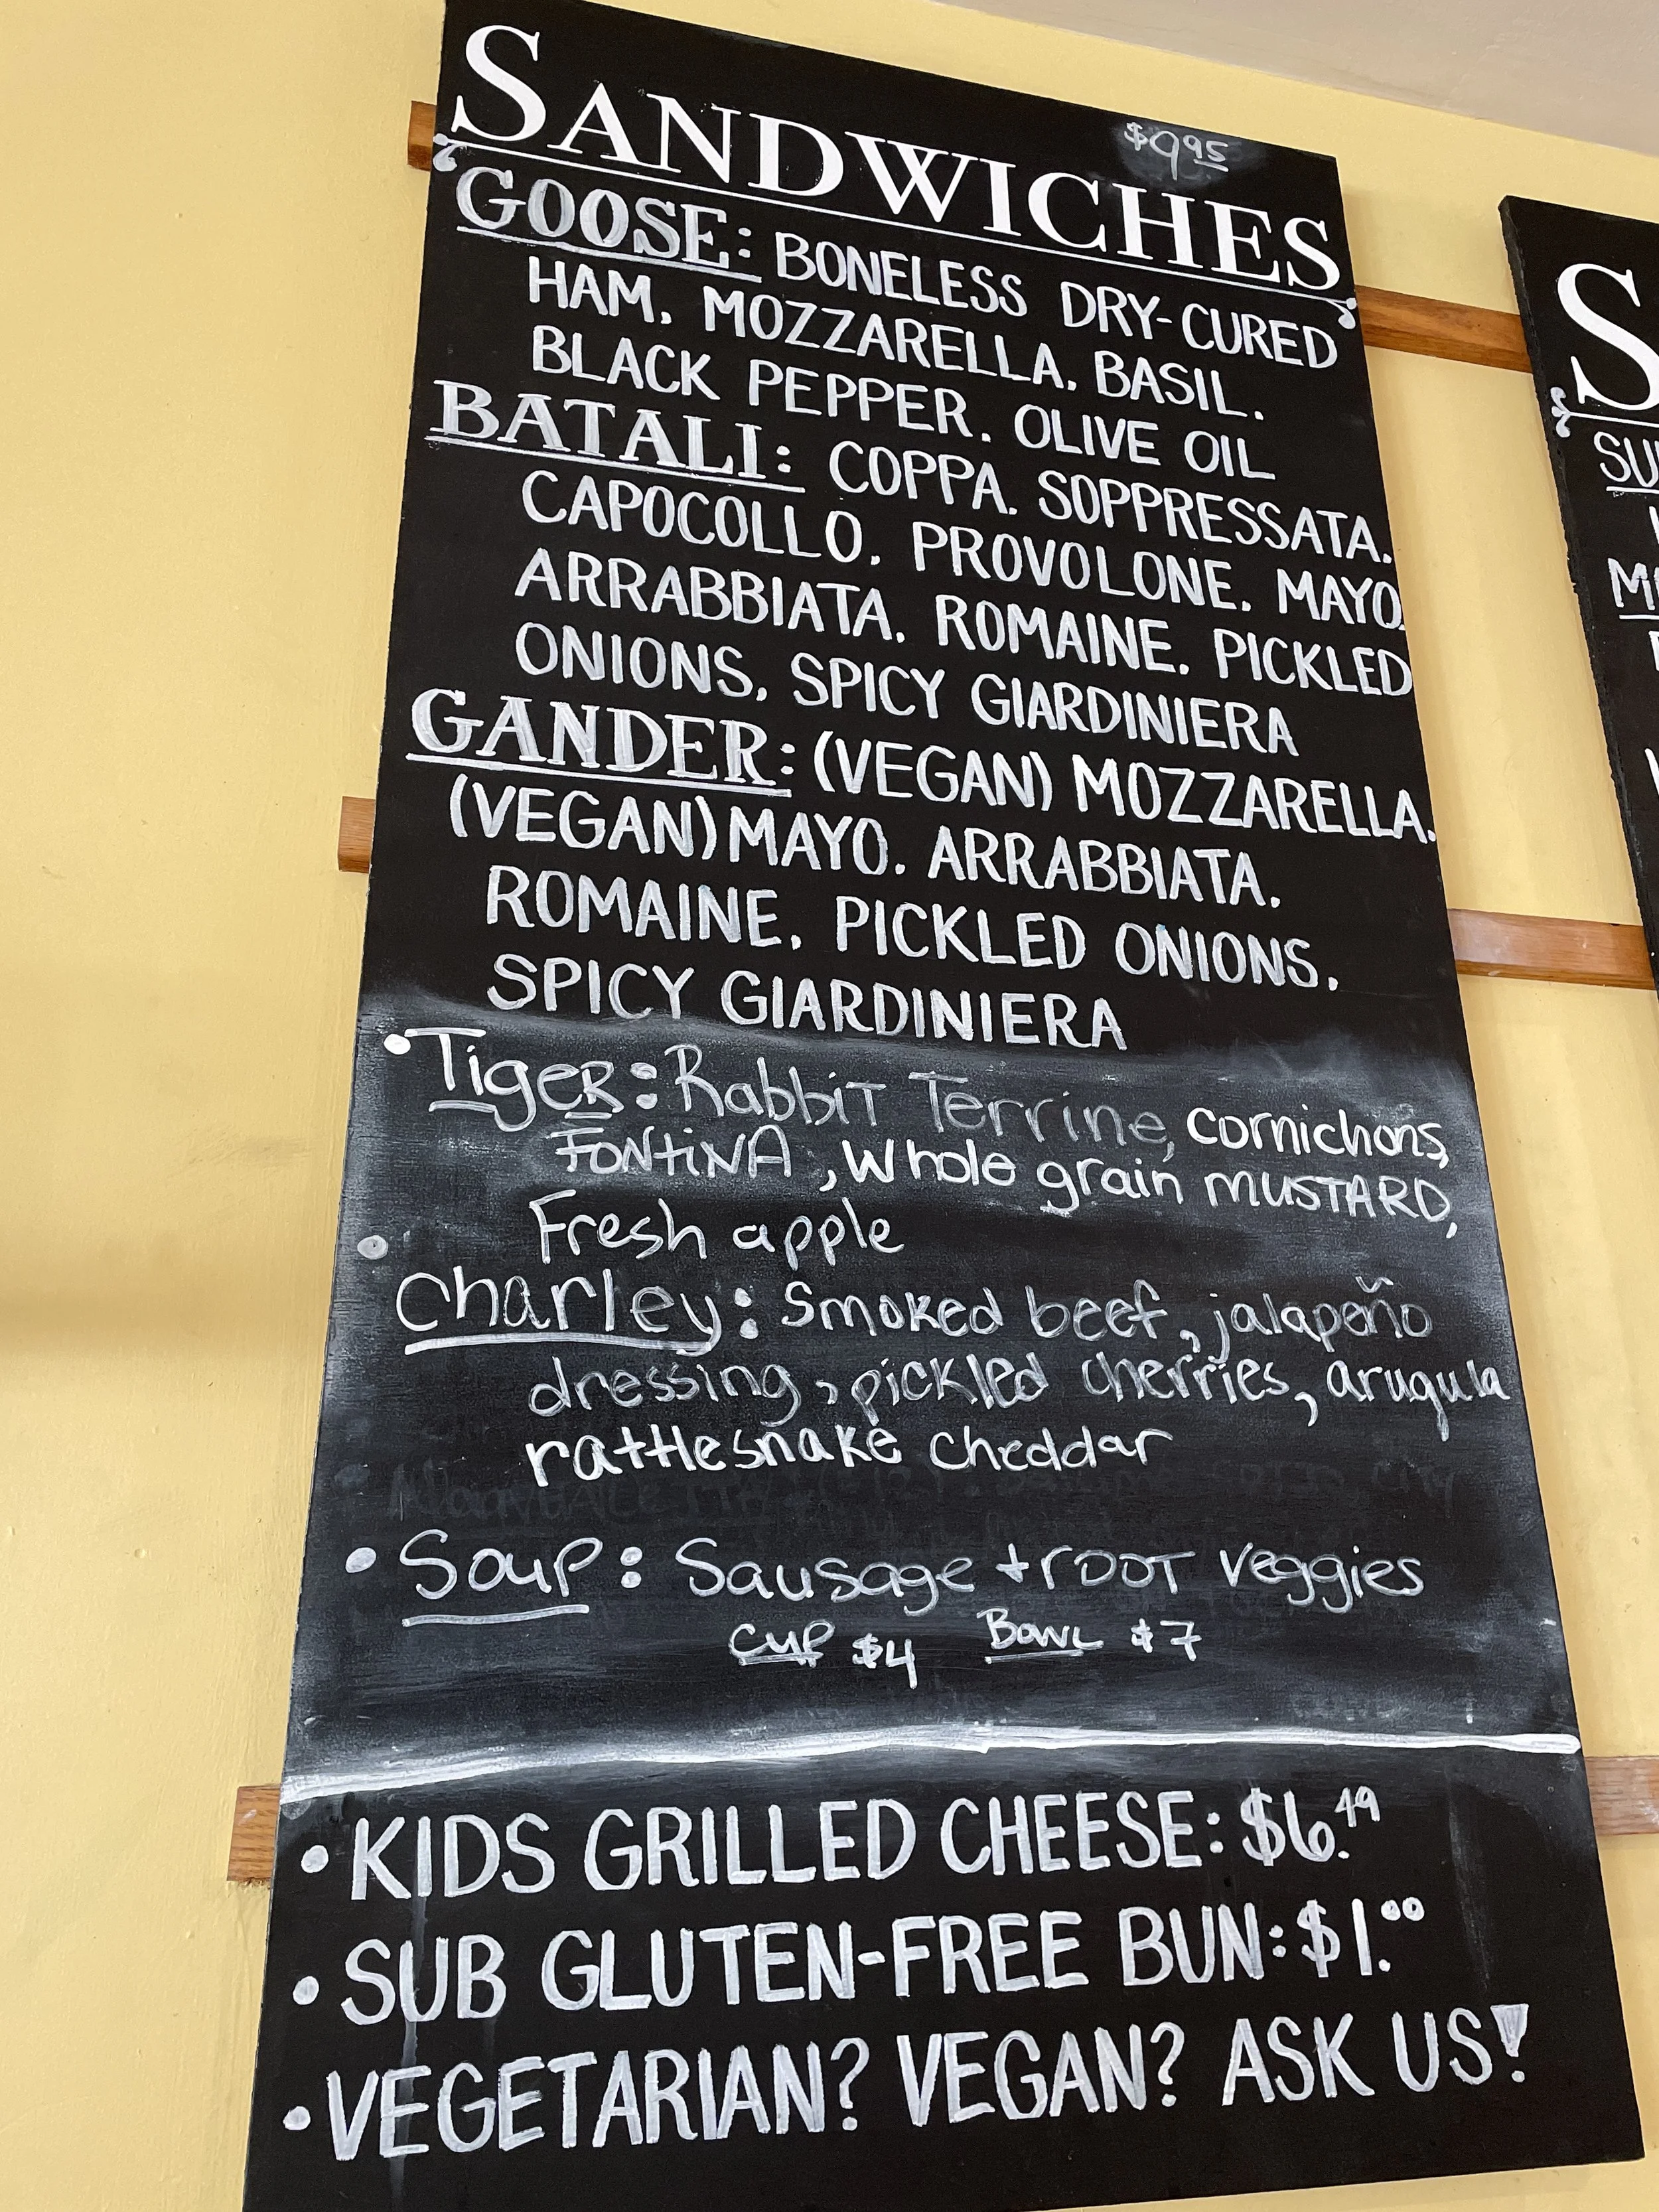 SANDWICHES $9.95
GOOSE: BONELESS DRY-CURED
HAM, MOZZARELLA, BASIL,
BLACK PEPPER, OLIVE OIL
BATALI: COPPA, SOPPRESSATA,
CAPOCOLLO, PROVOLONE, MAYO,
ARRABBIATA, ROMAINE, PICKLED
ONIONS, SPICY GIARDINIERA
GANDER: (VEGAN) MOZZARELLA,
(VEGAN) MAYO, ARRABBIATA,
ROMAINE, PICKLED ONIONS,
SPICY GIARDINIERA
• TigeR: Rabbit Terrine, cornichons,
FONtiNA, Whole grain MUSTARD,
Fresh apple
• Charley: Smoked beef, jalapeño
dressing, pickled cherries, arugula
rattlesnake cheddar
• Soup: Sausage + ROOT veggies
Cup $4 Bowl $7
• KIDS GRILLED CHEESE: $6.49
• SUB GLUTEN-FREE BUN: $1.00
• VEGETARIAN? VEGAN? ASK US!
S
SU